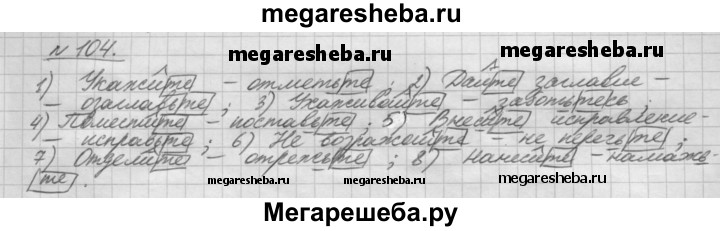 megaresheba.ru
№ 104.
megaresheba.ru megaresheba.ru
1) Укажите – отметьте; 2) Дайте заглавие –
– озаглавьте; 3) Ухаживайте – заботьтесь;
4) Поместите – поставьте; 5) Внесите исправление –
– исправьте; 6) Не возражайте – не перечьте;
7) Отделите – отрежьте; 8) нанесите – намажь-
те.
megaresheba.ru megaresheba.ru megaresheba.ru
Мегарешеба.ру